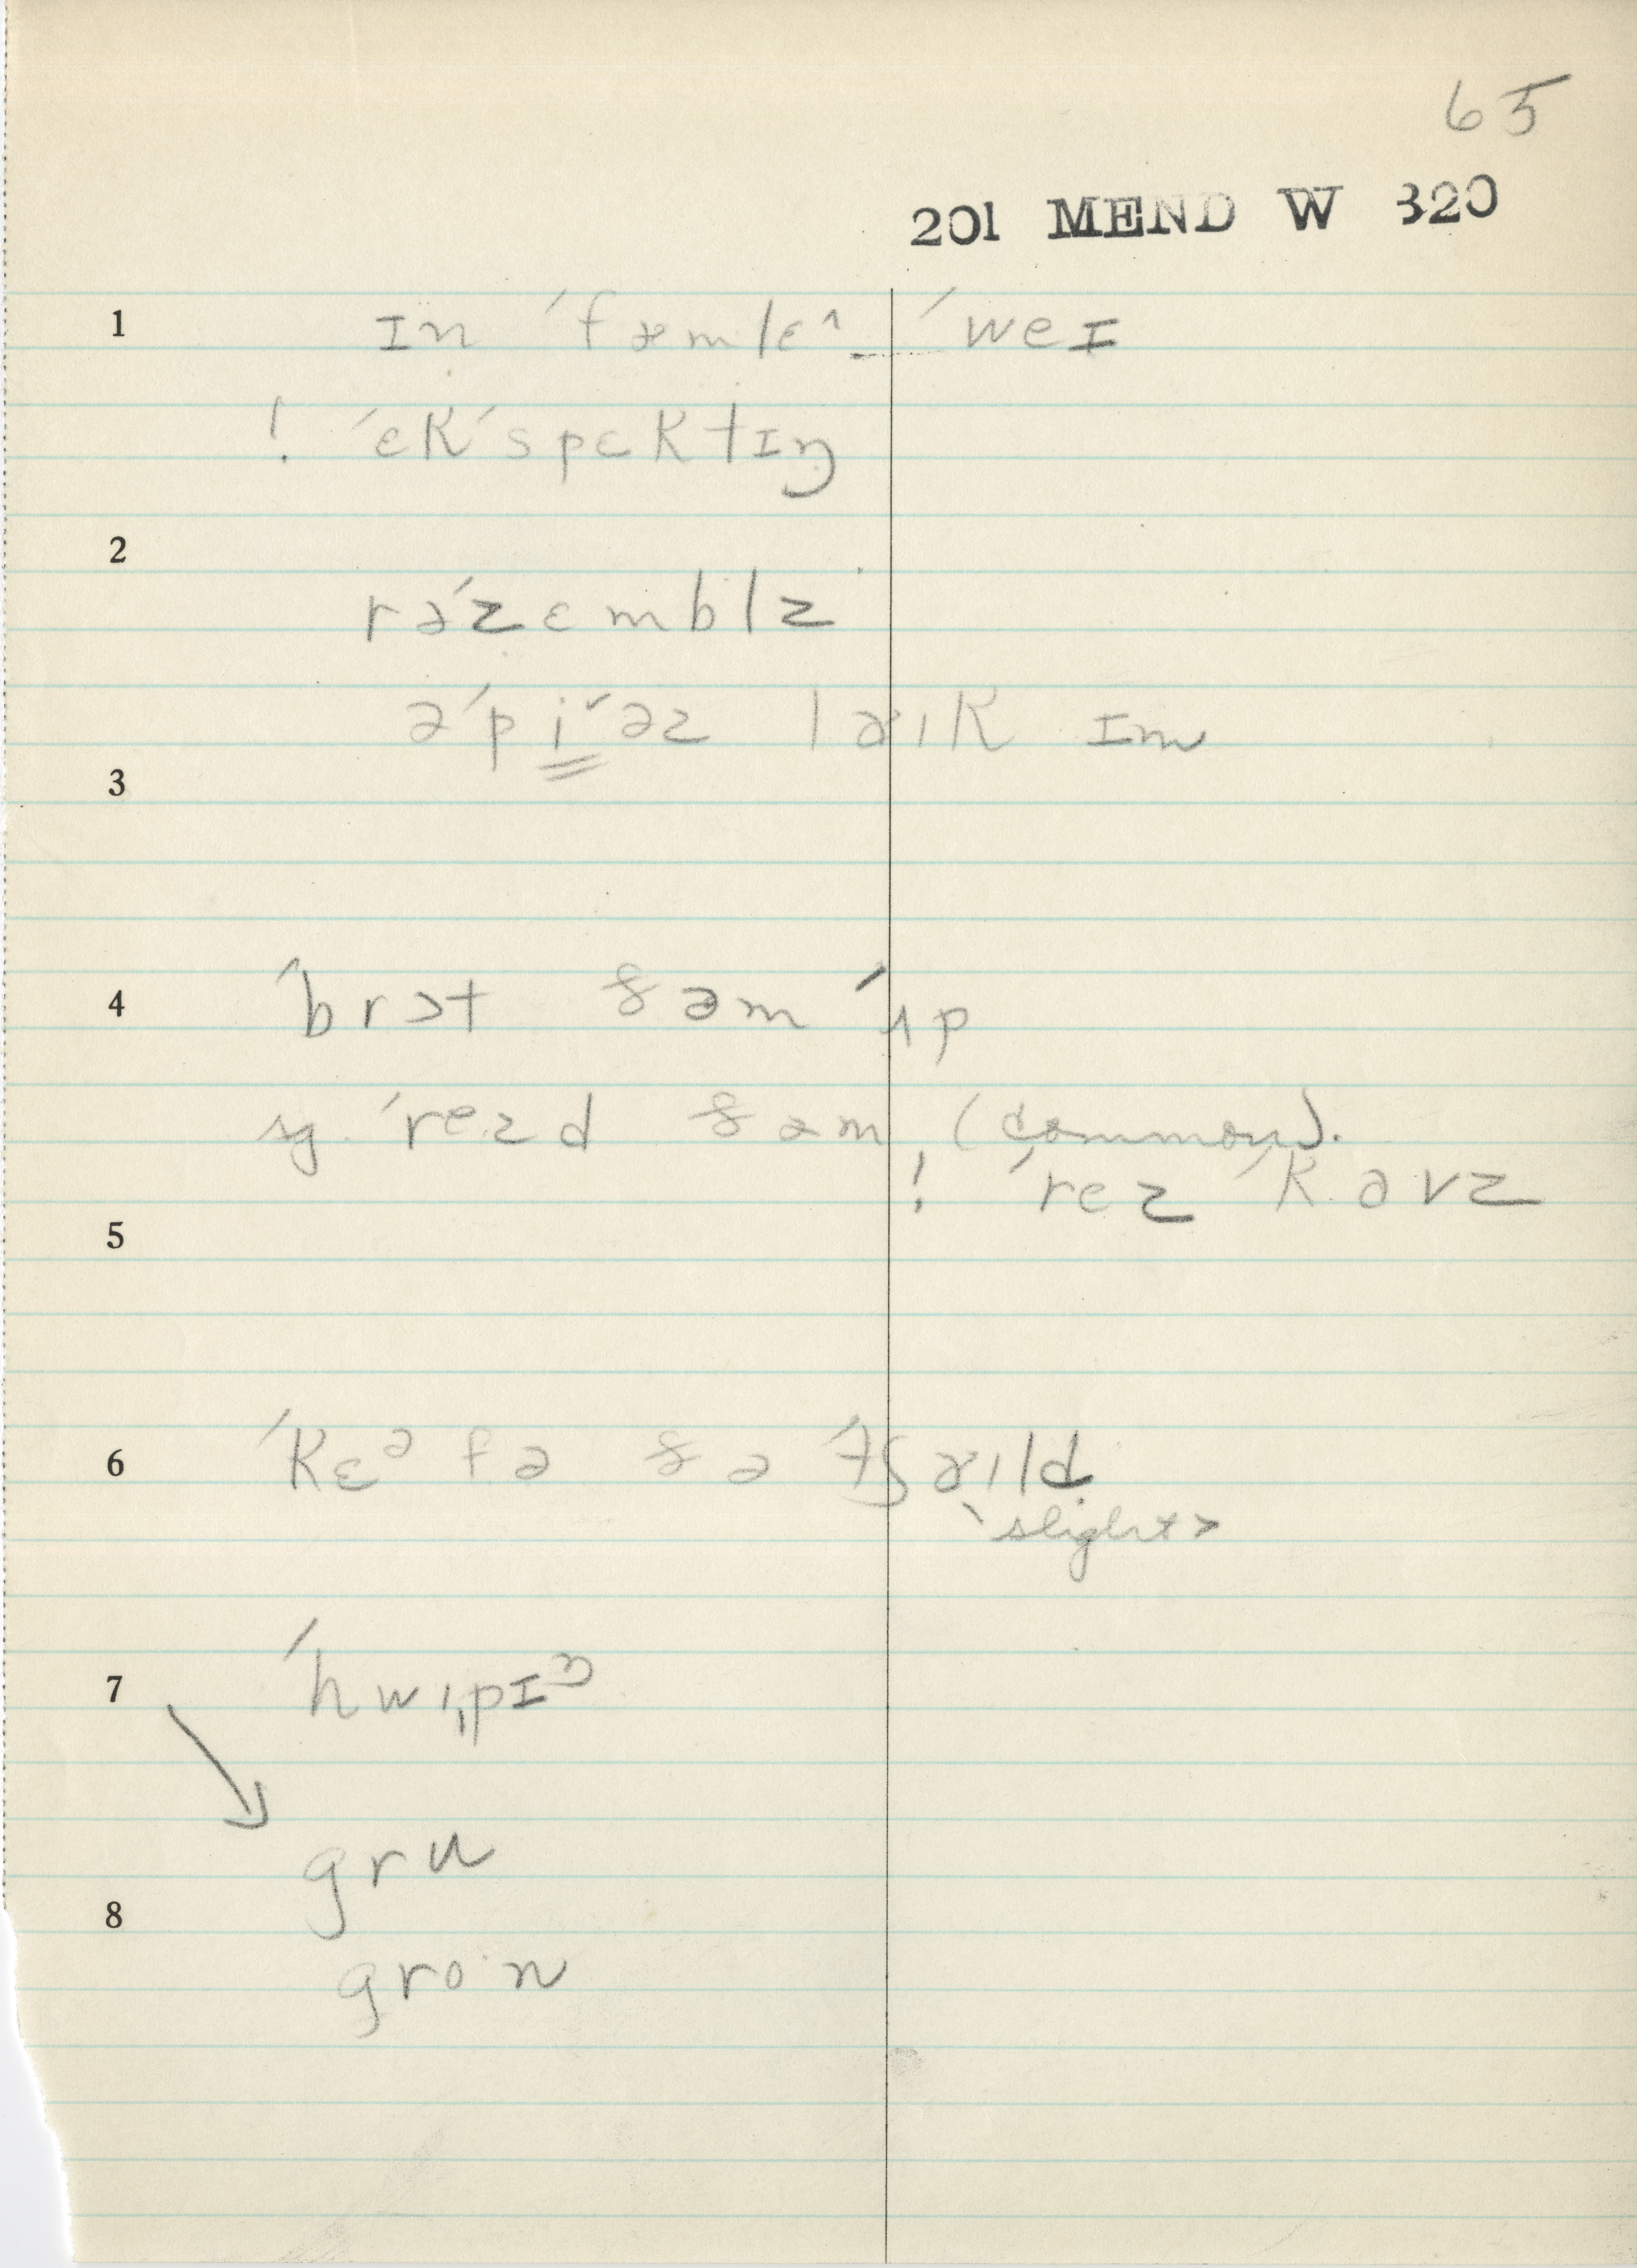 65
201 MEND W 320
1 ɪn ˈfæmlɛ^ ˈweɪ
! ˈɛkˈspɛktɪŋ
2
rəˈzɛmblz
əˈpi˅əz laɪk ɪm
3
4 ˈbrɔt ðəm ˈʌp
sg. ˈre·zd ðəm (common).
! ˈrez ˈkavz
5
6 ˈkɛᵊ fə ðə ˈtʃaɪld
slight>
7 ˈhwɪˌpɪᵑ
gru
8
gro·n